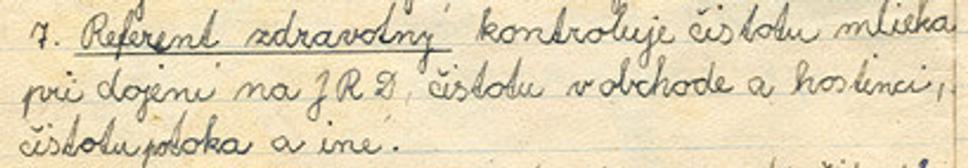 7. Referent zdravotný kontroluje čistotu mlieka
pri dojení na JRD, čistotu v obchode a hostinci,
čistotu potoka a iné.